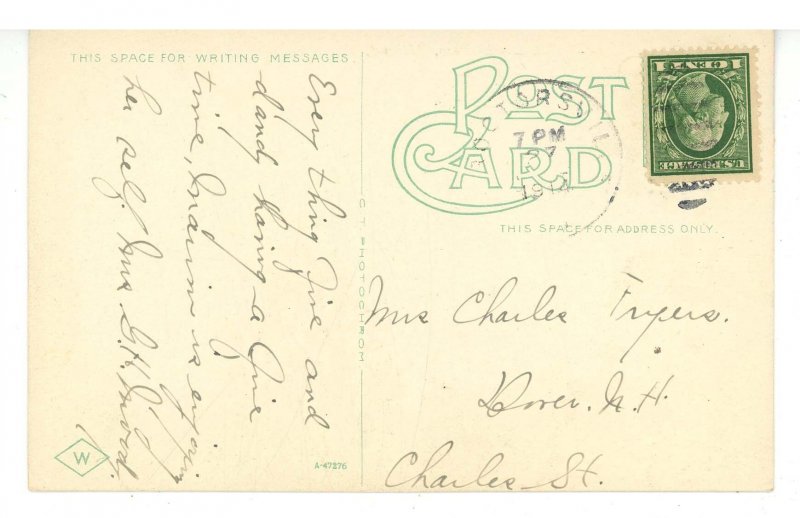 THIS SPACE FOR WRITING MESSAGES
POST CARD
THIS SPACE FOR ADDRESS ONLY.
1 CENT 1
U.S. POSTAGE
7 PM
Every thing fine and
dandy having a fine
time, is enjoying
her self. Mrs. G. H.
CT PHOTOCHROM
Mrs Charles Fryers.
Dover. N. H.
Charles St.
W
A-47276